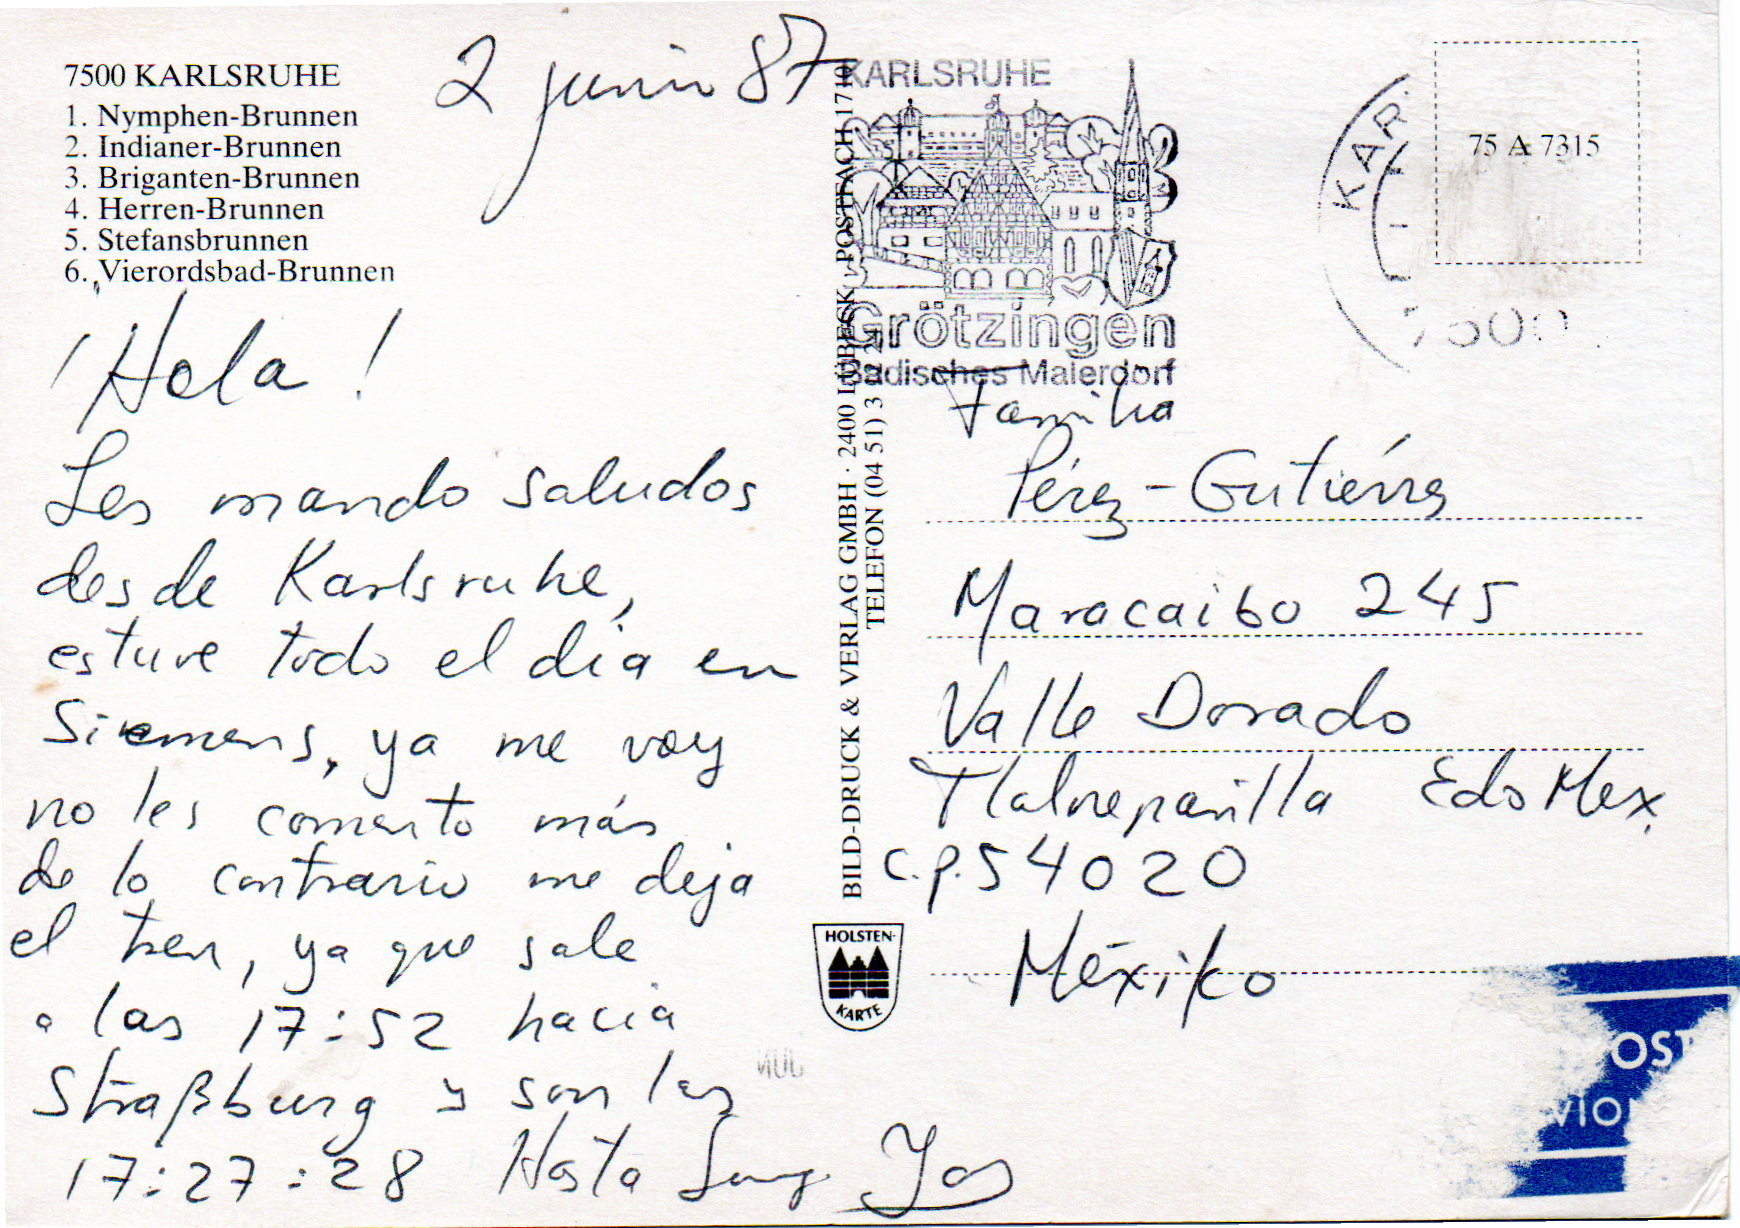 7500 KARLSRUHE
1. Nymphen-Brunnen
2. Indianer-Brunnen
3. Briganten-Brunnen
4. Herren-Brunnen
5. Stefansbrunnen
6. Vierordsbad-Brunnen
2 junio 87
¡Hola!
Les mando saludos
desde Karlsruhe,
estuve todo el día en
Siemens, ya me voy
no les comento más
de lo contrario me deja
el tren, ya que sale
a las 17:52 hacia
Straßburg y son las
17:27:28 Hasta
BILD-DRUCK & VERLAG GMBH · 2400 LÜBECK · POSTFACH 1710
TELEFON (04 51)
HOLSTEN-
KARTE
KARLSRUHE
Grötzingen
Badisches Malerdorf
KAR
7500
75 A 7315
Familia
Pérez-Gutiérrez
Maracaibo 245
Valle Dorado
Tlalnepantla Edo Mex.
C.P. 54020
Méxiko
JUN
OST
VION